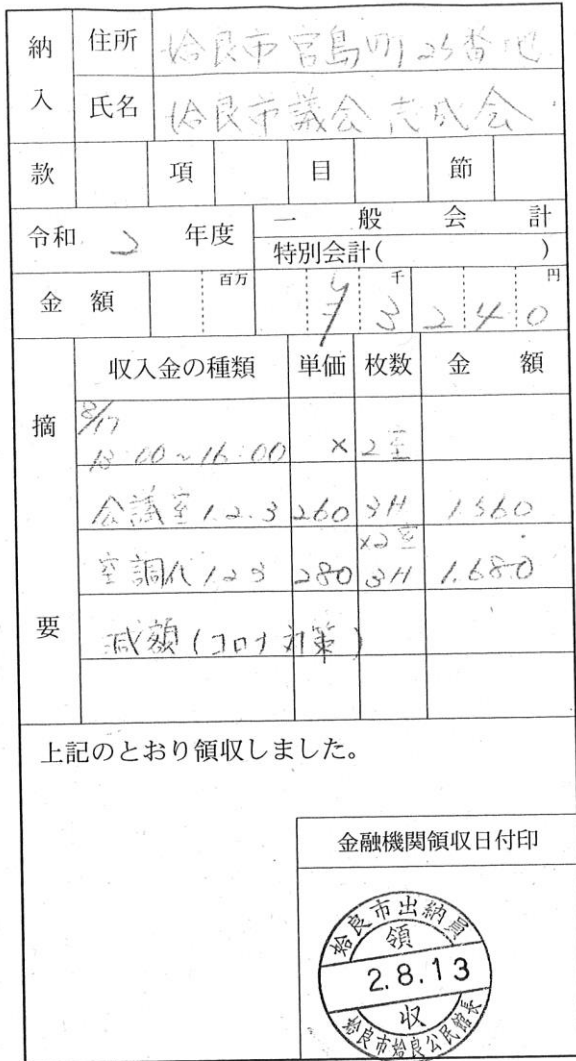 納入
住所 姶良市宮島町25番地
氏名 姶良市議会 志成会
款 項 目 節
令和 2 年度
一般会計
特別会計( )
金額 百万 千 円
¥3240
摘要
収入金の種類 単価 枚数 金額
8/17
13:00~16:00 × 2室
会議室1.2.3 260 3H 1560
×2室
空調代1.2.3 280 3H 1.680
減額(コロナ対策)
上記のとおり領収しました。
金融機関領収日付印
姶良市出納員
領
2.8.13
収
姶良市姶良公民館長